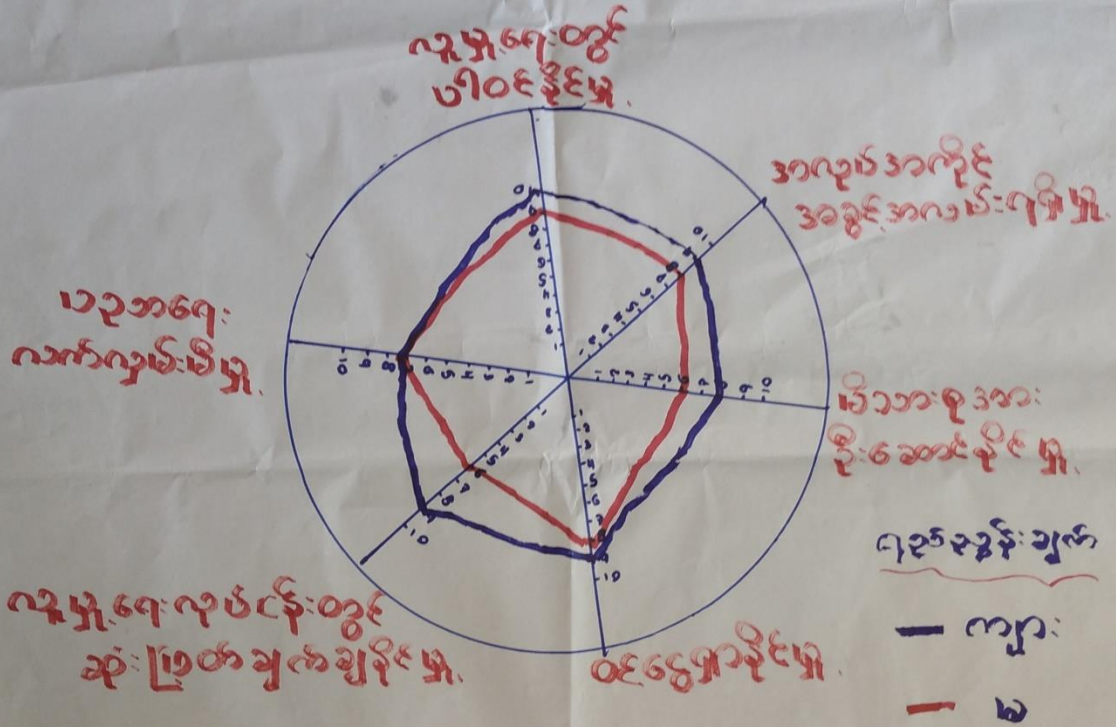 လူမှုရေးတွင်
ပါဝင်နိုင်မှု
အလုပ်အကိုင်
အခွင့်အလမ်းရရှိမှု
မိသားစုအား
ဦးဆောင်နိုင်မှု
ဝင်ငွေရှာနိုင်မှု
လူမှုရေးလုပ်ငန်းတွင်
ဆုံးဖြတ်ချက်ချနိုင်မှု
ပညာရေး
လက်လှမ်းမီမှု
ရည်ညွှန်းချက်
ကျား
မ